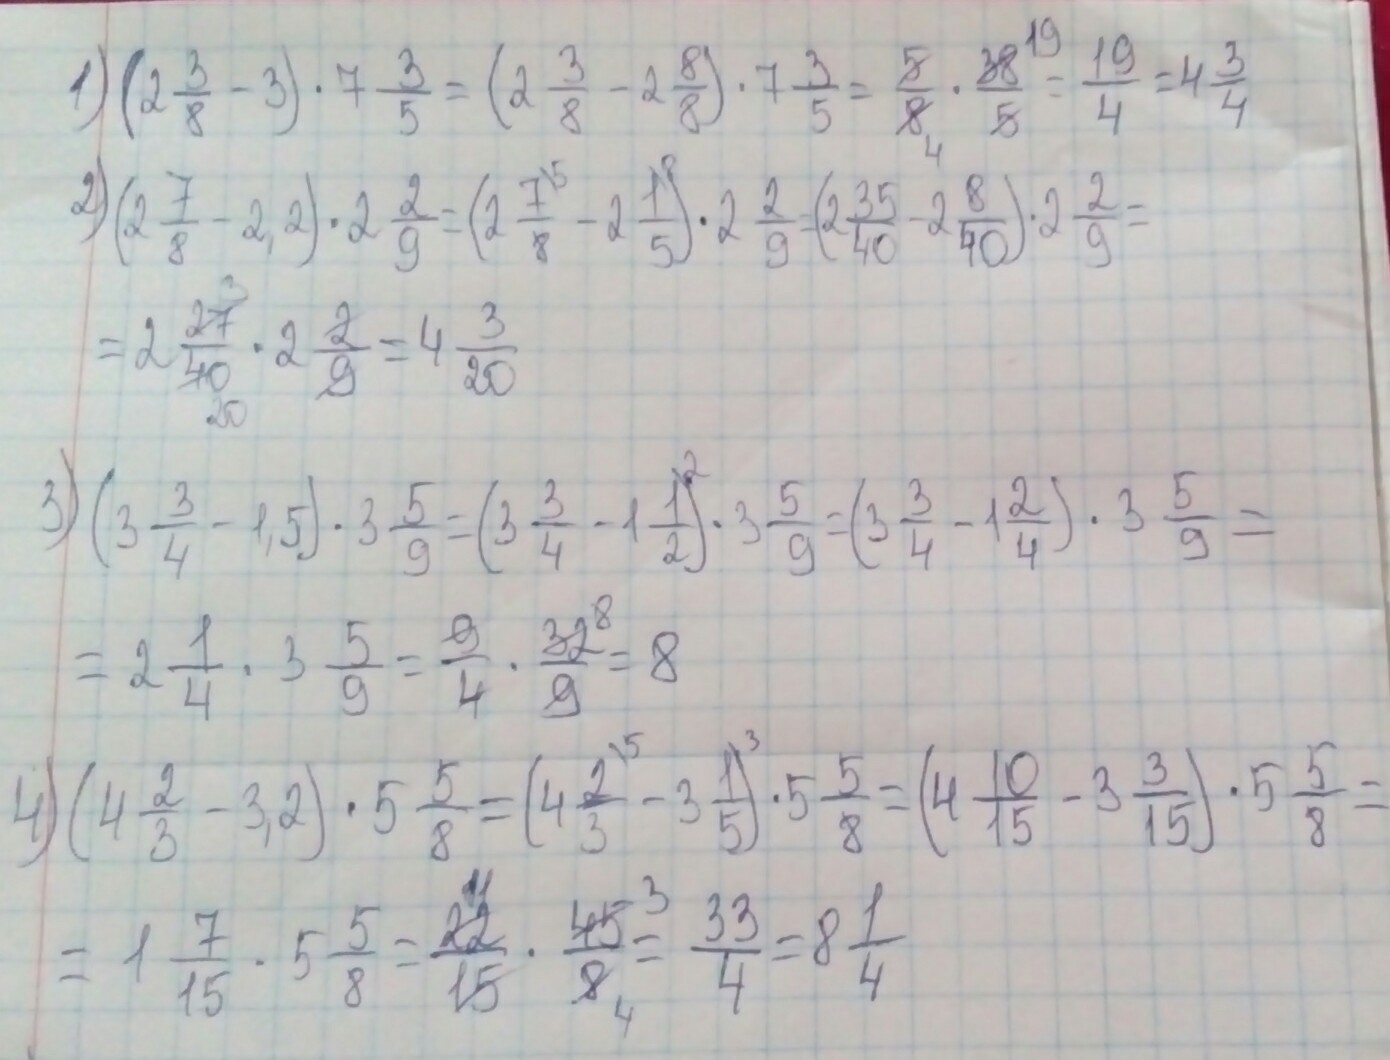 1) (2 3/8 - 3) · 7 3/5 = (2 3/8 - 2 8/8) · 7 3/5 = 5/8 4 · 38 19/5 = 19/4 = 4 3/4
2) (2 7/8 - 2,2) · 2 2/9 = (2 7\5/8 - 2 1\8/5) · 2 2/9 = (2 35/40 - 2 8/40) · 2 2/9 =
= 2 27 3/40 20 · 2 2/9 = 4 3/20
3) (3 3/4 - 1,5) · 3 5/9 = (3 3/4 - 1 1\2/2) · 3 5/9 = (3 3/4 - 1 2/4) · 3 5/9 =
= 2 1/4 · 3 5/9 = 9/4 · 32 8/9 = 8
4) (4 2/3 - 3,2) · 5 5/8 = (4 2\5/3 - 3 1\3/5) · 5 5/8 = (4 10/15 - 3 3/15) · 5 5/8 =
= 1 7/15 · 5 5/8 = 22 11/15 · 45 3/8 4 = 33/4 = 8 1/4